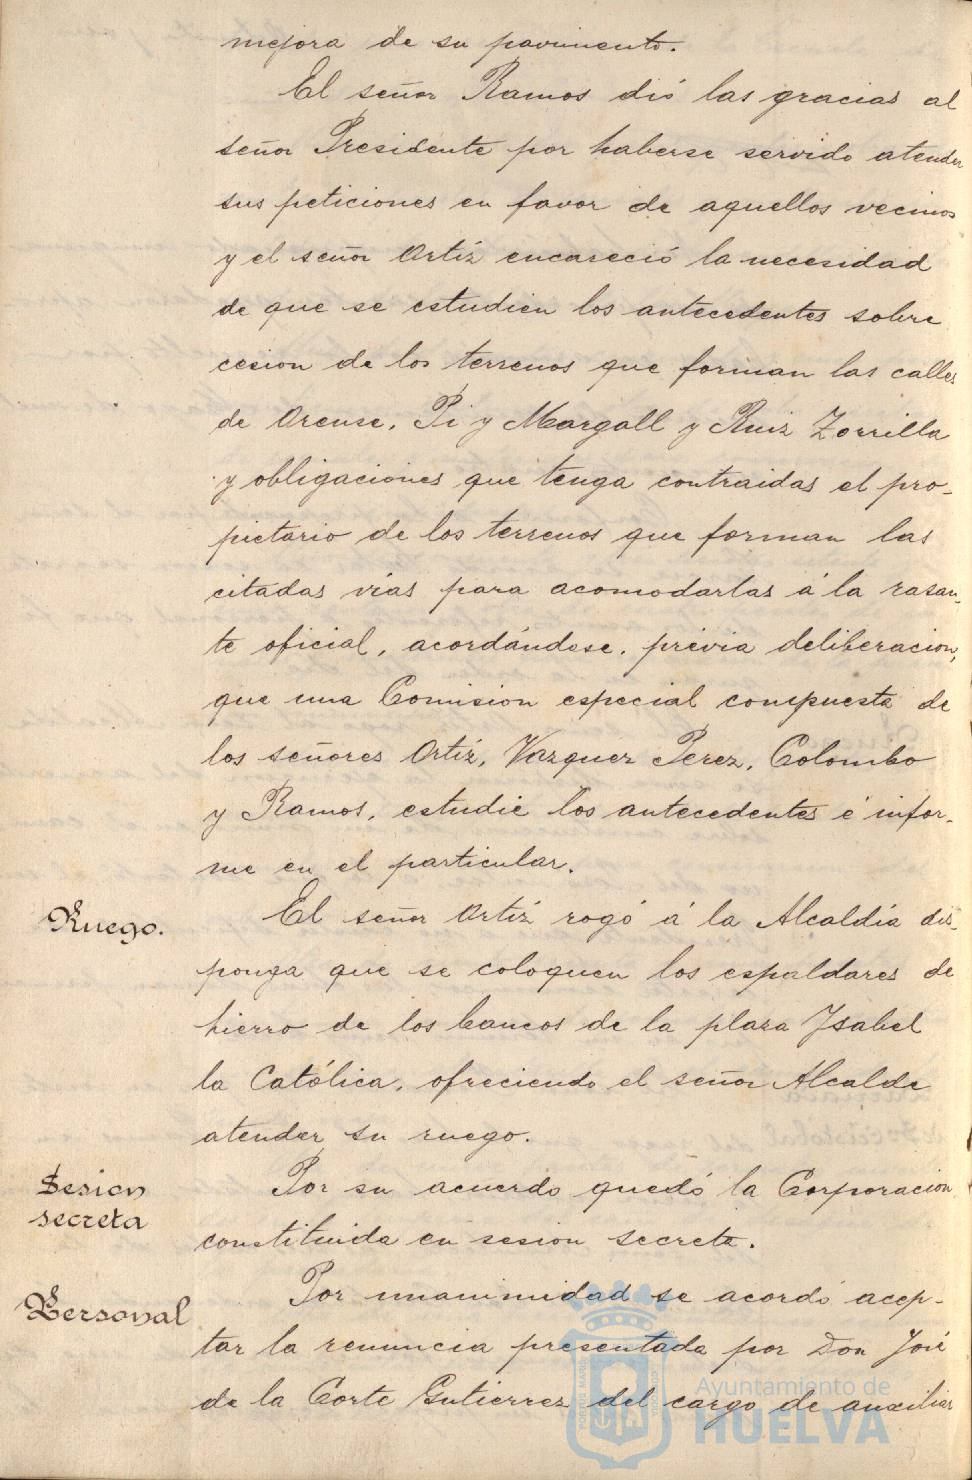 mejora de su pavimento.
El señor Ramos dió las gracias al
señor Presidente por haberse servido atender
sus peticiones en favor de aquellos vecinos
y el señor Ortíz encareció la necesidad
de que se estudien los antecedentes sobre
cesion de los terrenos que forman las calles
de Orense, Pi y Margall y Ruiz Zorrilla
y obligaciones que tenga contraidas el pro-
pietario de los terrenos que forman las
citadas vías para acomodarlas á la rasan-
te oficial, acordándose, previa deliberacion,
que una Comision especial compuesta de
los señores Ortíz, Vazquez Perez, Colombo
y Ramos, estudie los antecedentes é infor-
me en el particular.
Ruego.
El señor Ortíz rogó á la Alcaldía dis-
ponga que se coloquen los espaldares de
hierro de los bancos de la plaza Ysabel
la Católica, ofreciendo el señor Alcalde
atender su ruego.
Sesion
secreta
Por su acuerdo quedó la Corporacion
constituida en sesion secreta.
Personal
Por unanimidad se acordó acep-
tar la renuncia presentada por Don José
de la Corte Gutierrez del cargo de auxiliar
Ayuntamiento de
HUELVA